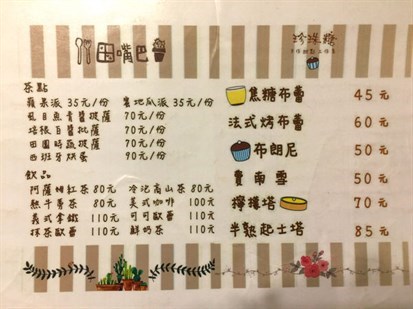 田嘴巴
珍珠糖
茶點
蘋果派 35元/份 紫地瓜派 35元/份
虱目魚青醬披薩 70元/份
培根百匯披薩 70元/份
田園時蔬披薩 70元/份
西班牙烘蛋 90元/份
飲品
阿薩姆紅茶 80元 冷泡高山茶 80元
熱千壽茶 80元 美式咖啡 100元
義式拿鐵 110元 可可歐蕾 110元
抹茶歐蕾 110元 鮮奶茶 110元
焦糖布蕾 45元
法式烤布蕾 60元
布朗尼 50元
費南雪 50元
檸檬塔 70元
半熟起士塔 85元